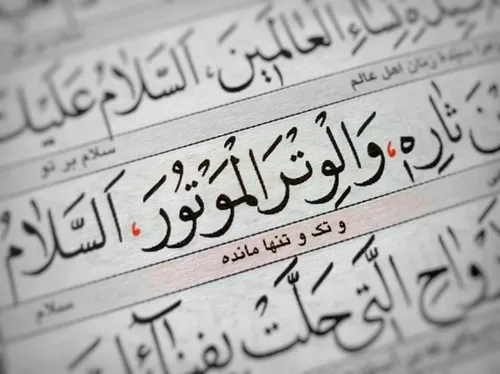 سَيِّدَةِ نِسَاءِ الْعَالَمِينَ، اَلسَّلَامُ عَلَيْكَ
سیدهٔ زنان اهل عالم سلام بر تو
ثَارِهِ، وَالْوِتْرَ الْمَوْتُورَ، اَلسَّلَامُ
و تک و تنها مانده سلام
الَّتِي حَلَّتْ بِفِنَائِكَ